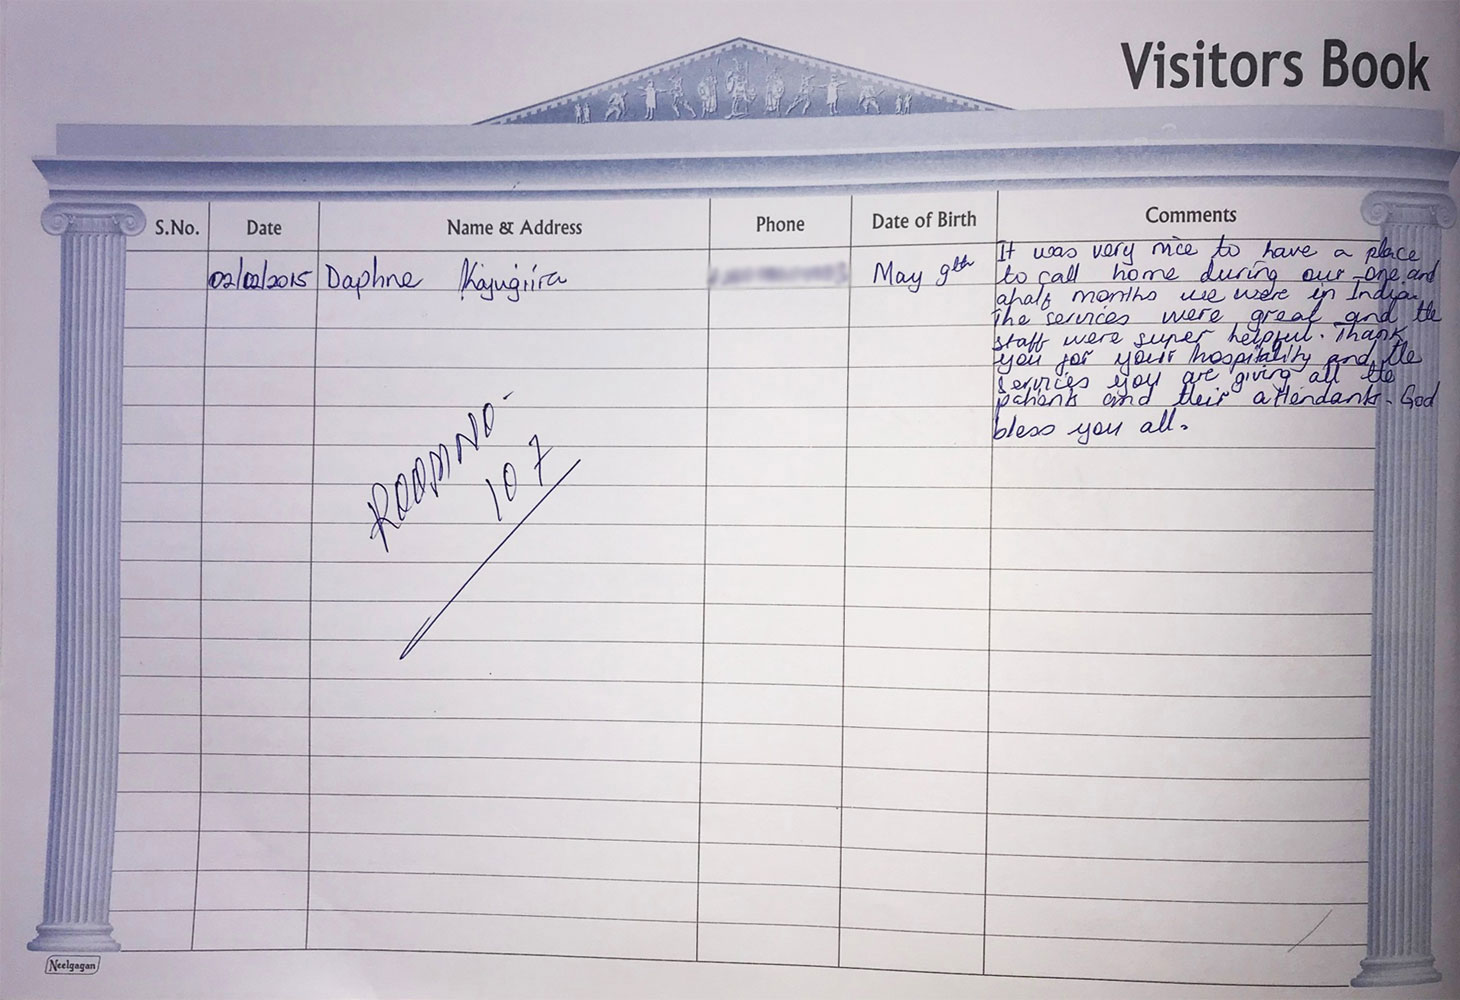 Visitors Book
S.No. Date Name & Address Phone Date of Birth Comments
02/02/2015 Daphne Kajugiira May 9th
It was very nice to have a place
to call home during our one and
a half months we were in India.
The services were great and the
staff were super helpful. Thank
you for your hospitality and the
services you are giving all the
patients and their attendants. God
bless you all.
ROOM NO-
107
Neelgagan